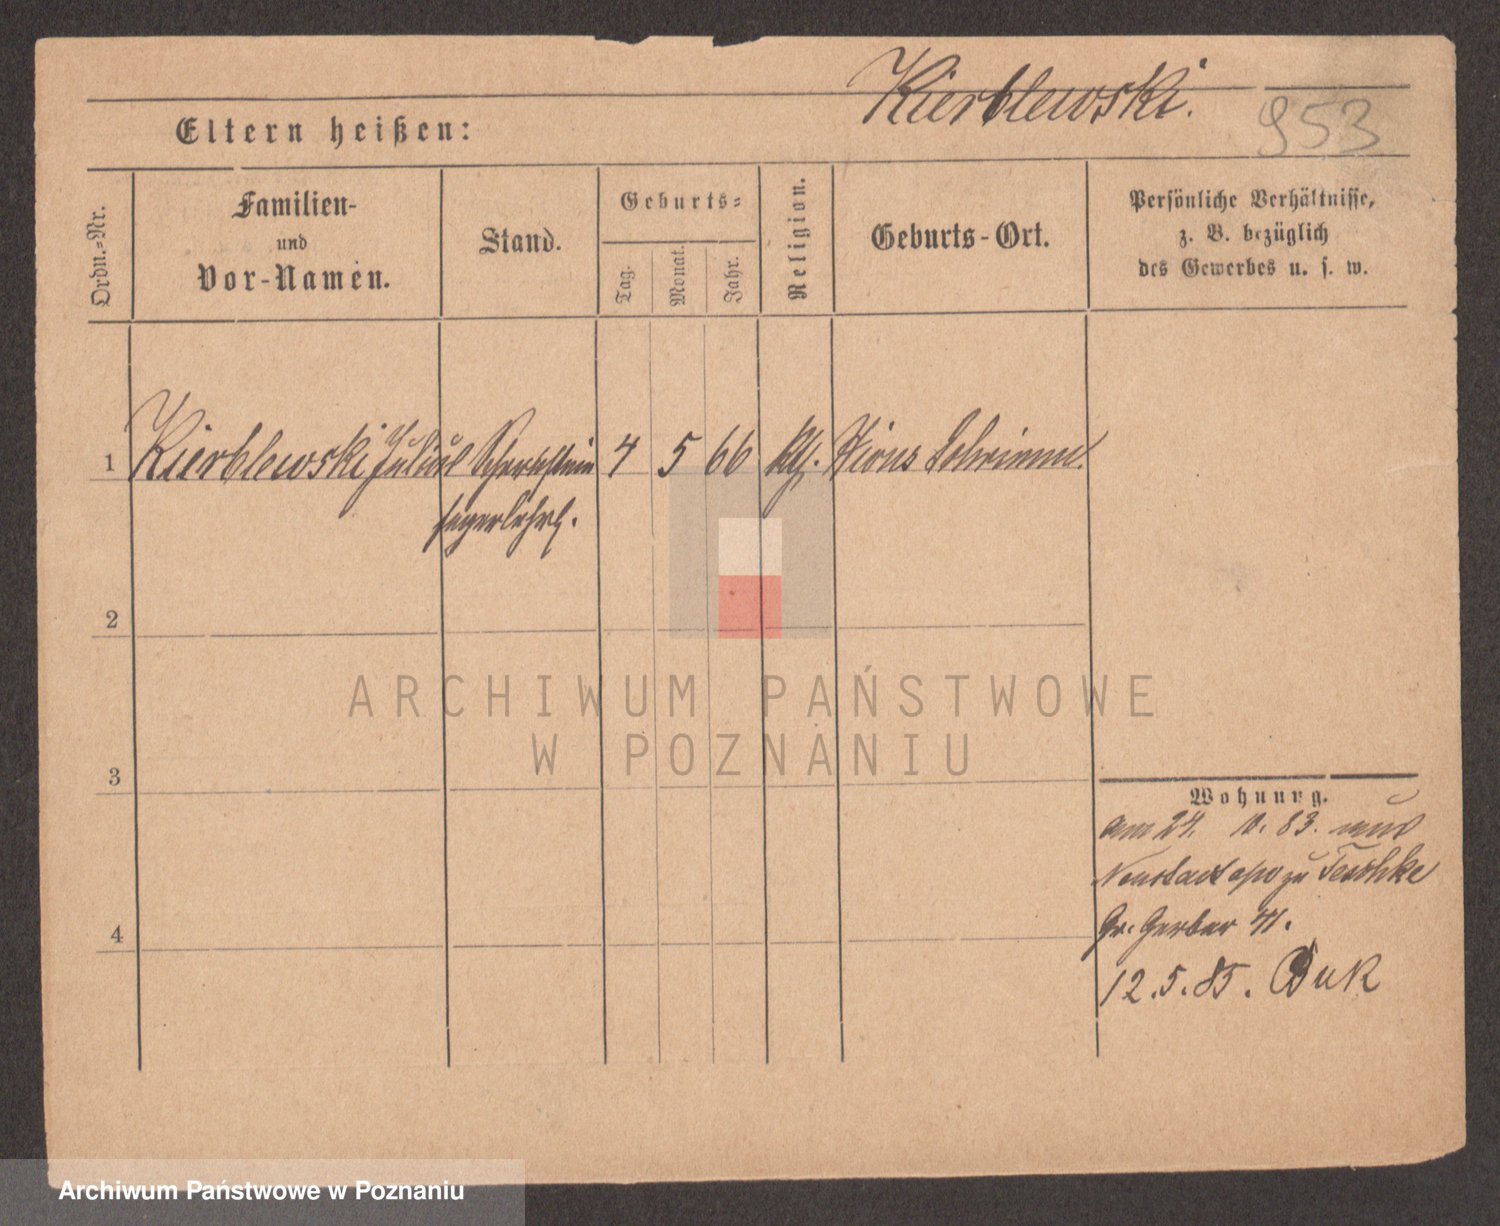 Kierblewski.
953
Eltern heißen:
Ordn.=Nr.
Familien-
und
Vor-Namen.
Stand.
Geburts=
Tag.
Monat.
Jahr.
Religion.
Geburts-Ort.
Persönliche Verhältnisse,
z. B. bezüglich
des Gewerbes u. s. w.
1 Kierblewski Julius Schornstein 4 5 66 kth. Xions Schrimm
fegerlehrl.
2
ARCHIWUM PAŃSTWOWE
W POZNANIU
3
Wohnung.
am 24. 10. 83. aus
zu Teschke
Gr. Gerber 41.
4
12.5.85. Buk
Archiwum Państwowe w Poznaniu